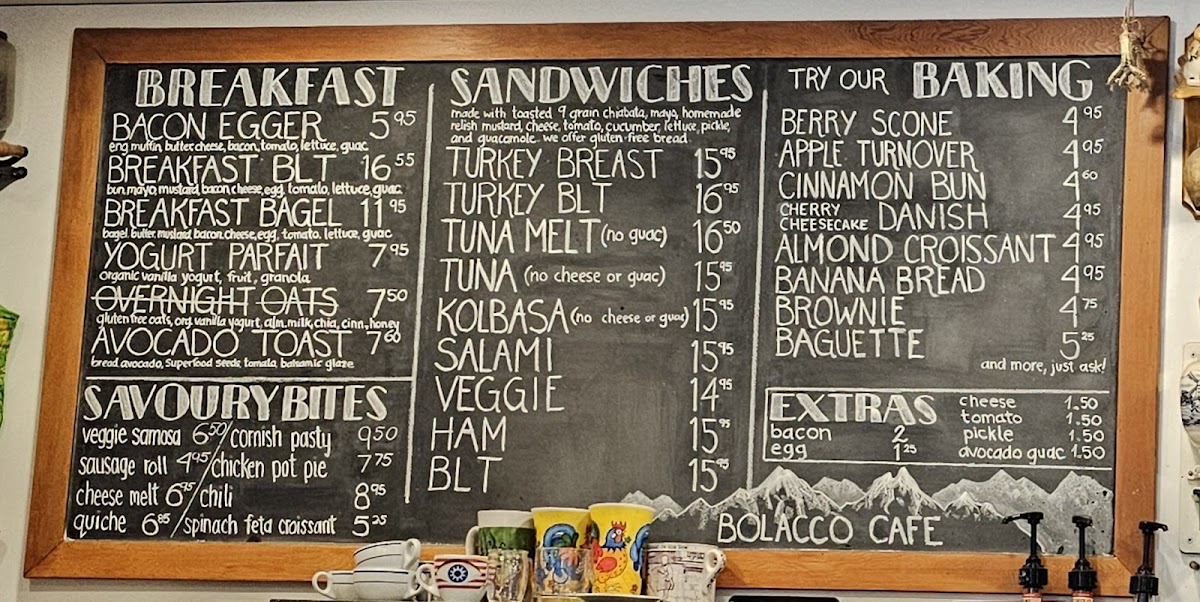 BREAKFAST
BACON EGGER 5.95
eng muffin, butter, cheese, bacon, tomato, lettuce, guac
BREAKFAST BLT 16.55
bun, mayo, mustard, bacon, cheese, egg, tomato, lettuce, guac
BREAKFAST BAGEL 11.95
bagel, butter, mustard, bacon, cheese, egg, tomato, lettuce, guac
YOGURT PARFAIT 7.95
organic vanilla yogurt, fruit, granola
OVERNIGHT OATS 7.50
gluten free oats, org. vanilla yogurt, alm. milk, chia, cinn, honey
AVOCADO TOAST 7.60
bread, avocado, superfood seeds, tomato, balsamic glaze
SAVOURY BITES
veggie samosa 6.50 / cornish pasty 9.50
sausage roll 4.95 / chicken pot pie 7.75
cheese melt 6.95 / chili 8.95
quiche 6.85 / spinach feta croissant 5.25
SANDWICHES
made with toasted 9 grain chiabata, mayo, homemade
relish mustard, cheese, tomato, cucumber, lettuce, pickle,
and guacamole. we offer gluten-free bread
TURKEY BREAST 15.95
TURKEY BLT 16.95
TUNA MELT (no guac) 16.50
TUNA (no cheese or guac) 15.95
KOLBASA (no cheese or guac) 15.95
SALAMI 15.95
VEGGIE 14.95
HAM 15.95
BLT 15.95
TRY OUR BAKING
BERRY SCONE 4.95
APPLE TURNOVER 4.95
CINNAMON BUN 4.60
CHERRY
CHEESECAKE DANISH 4.95
ALMOND CROISSANT 4.95
BANANA BREAD 4.95
BROWNIE 4.75
BAGUETTE 5.25
and more, just ask!
EXTRAS
bacon 2
egg 1.25
cheese 1.50
tomato 1.50
pickle 1.50
avocado guac 1.50
BOLACCO CAFE